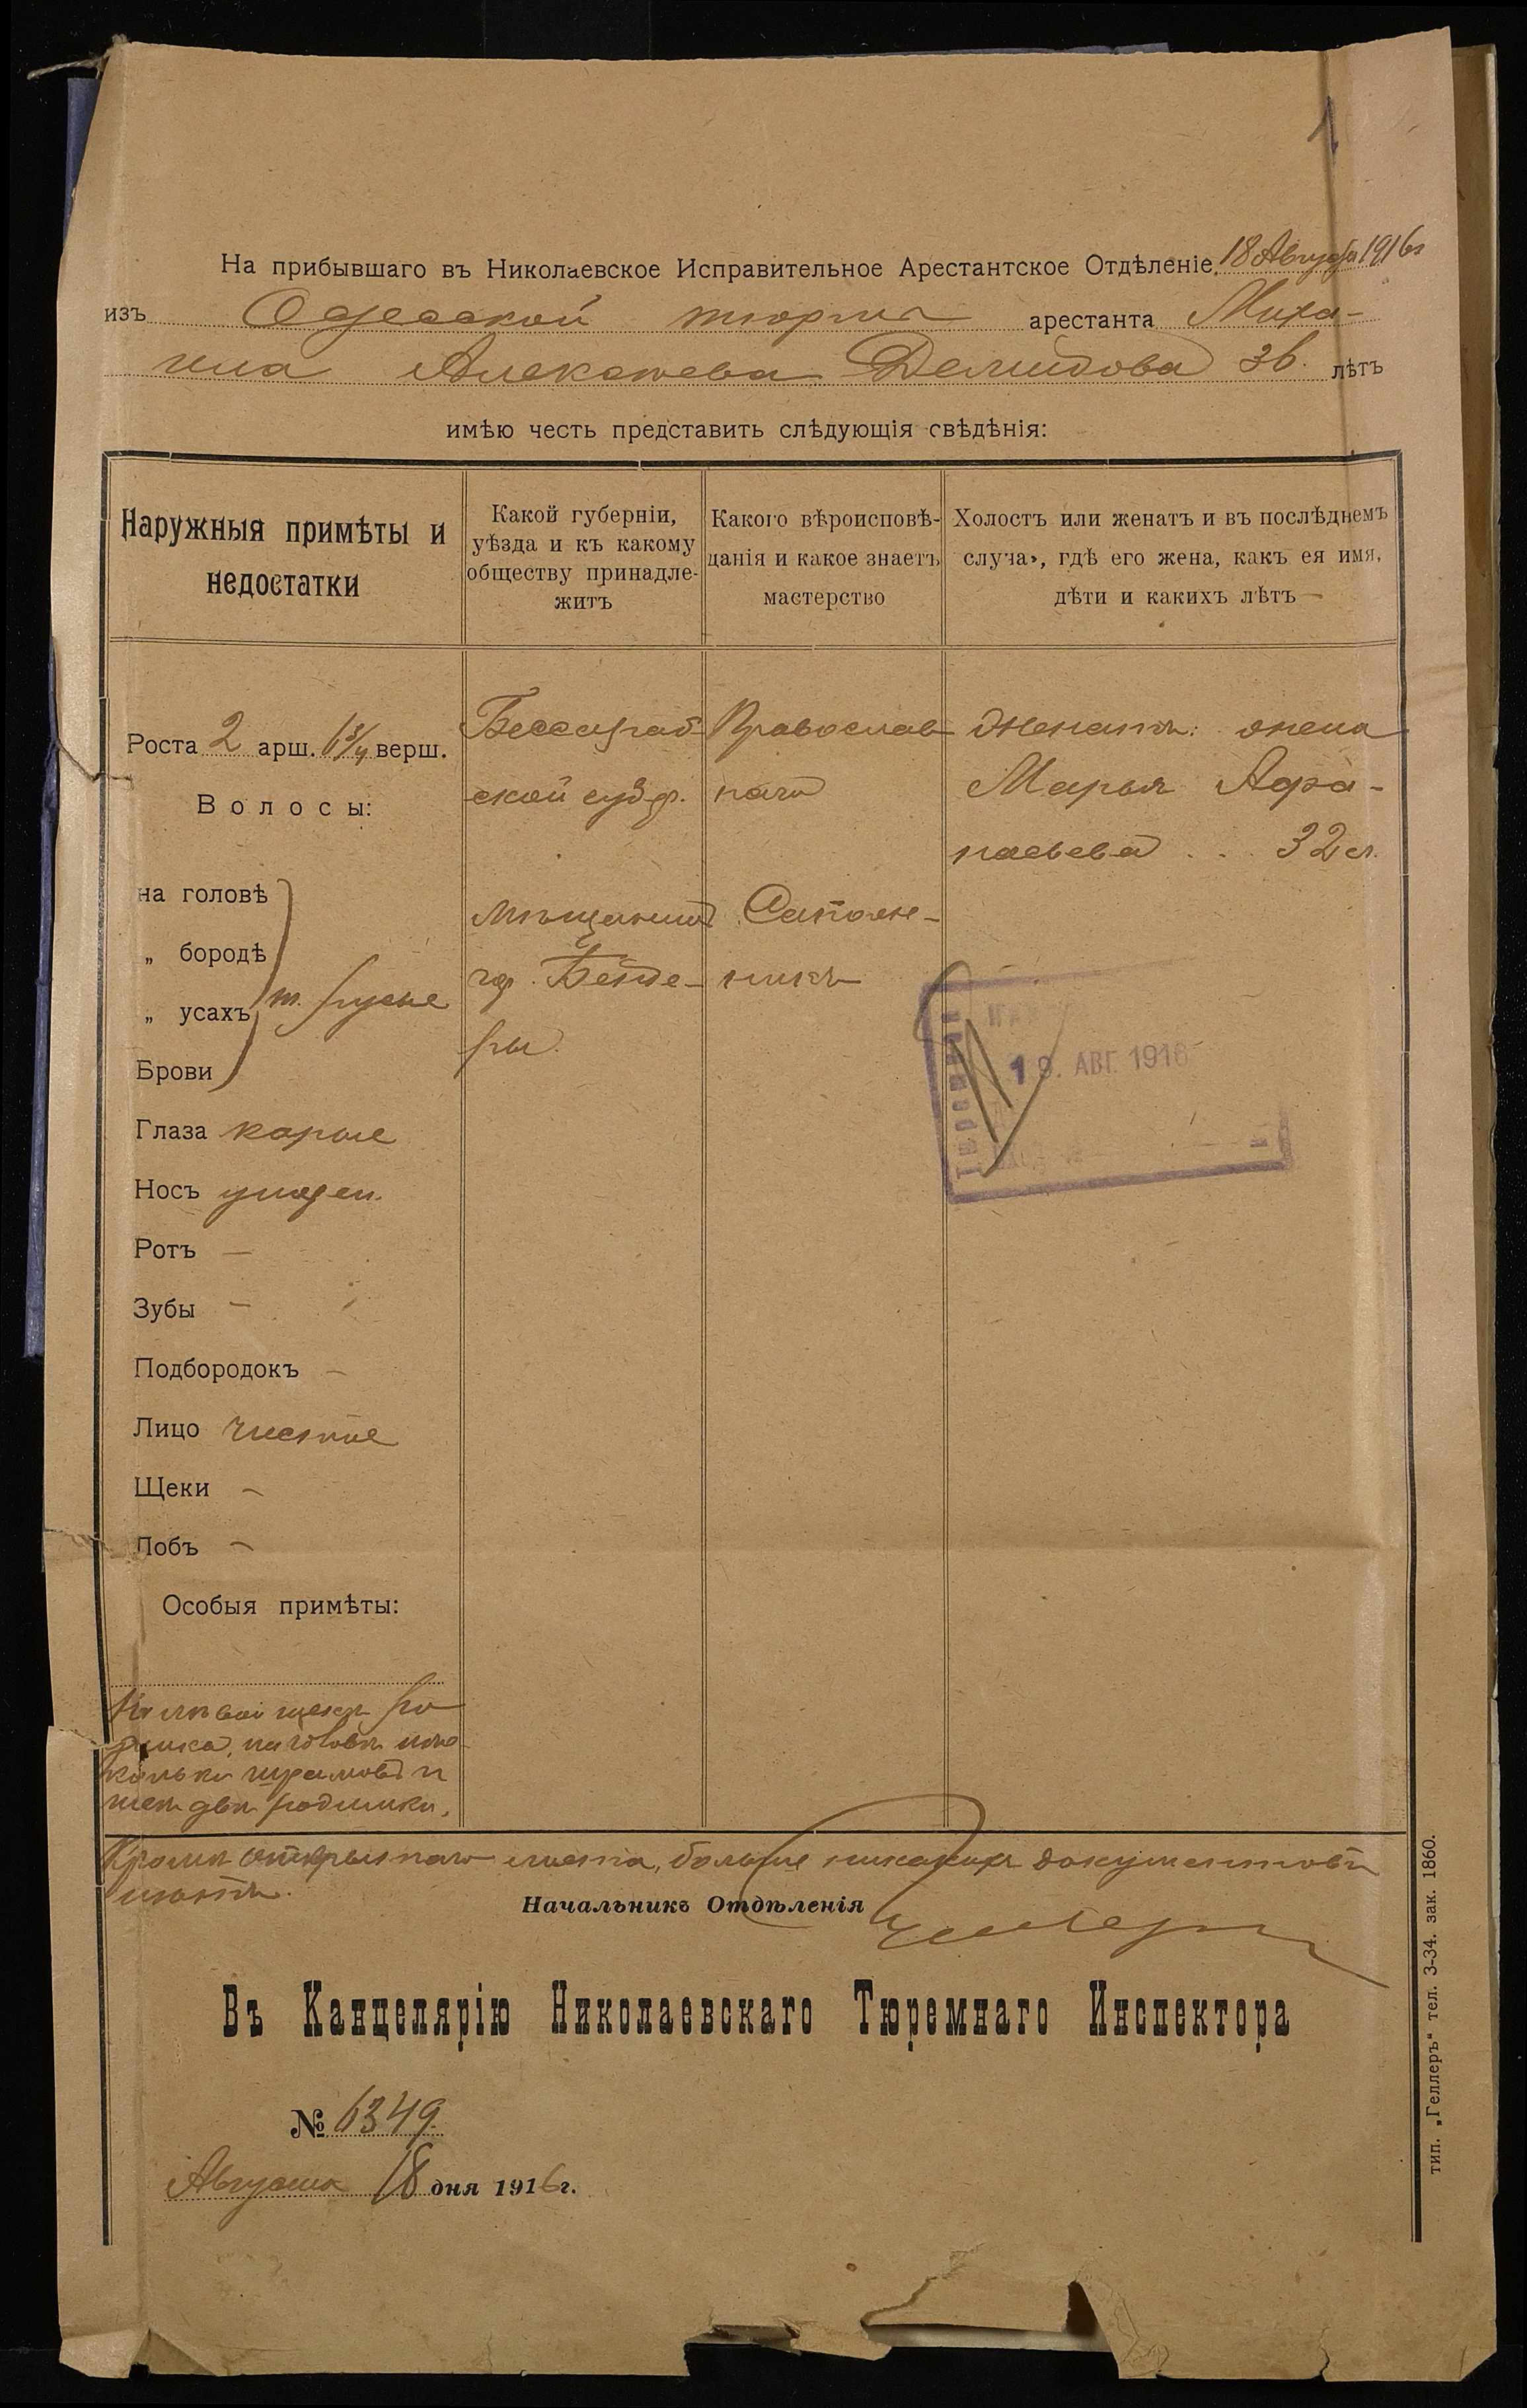 1
На прибывшаго въ Николаевское Исправительное Арестантское Отдѣленіе 18 Августа 1916г
изъ Одесской тюрмы арестанта Миха-
ила Алексѣева Демидова 36. лѣтъ
имѣю честь представить слѣдующія свѣдѣнія:
Наружныя примѣты и
недостатки
Какой губерніи,
уѣзда и къ какому
обществу принадле-
житъ
Какого вѣроисповѣ-
данія и какое знаетъ
мастерство
Холостъ или женатъ и въ послѣднемъ
случаѣ, гдѣ его жена, какъ ея имя,
дѣти и какихъ лѣтъ
Роста 2 арш. 6 3/4 верш.
Волосы:
на головѣ
„ бородѣ
„ усахъ т. русые
Брови
Глаза карые
Носъ умѣрен.
Ротъ —
Зубы —
Подбородокъ —
Лицо чистое
Щеки —
Лобъ —
Особыя примѣты:
На лѣвой щекѣ ро
димка, на головѣ нѣс
колько шрамовъ и
шеѣ двѣ родимки.
Бессараб
ской губ.
мѣщанинъ
гор. Бенде-
ры.
Православ
наго
Сапож-
никъ
Женатъ: жена
Марья Афа-
насьева . . . 32 л.
19. АВГ. 1916
Кромѣ открытаго листа, больше никакихъ документовъ
нѣтъ.
Начальникъ Отдѣленія
Въ Канцелярію Николаевскаго Тюремнаго Инспектора
№ 6349.
Августа 18 дня 1916г.
тип. „Геллеръ“ тел. 3-34. зак. 1860.